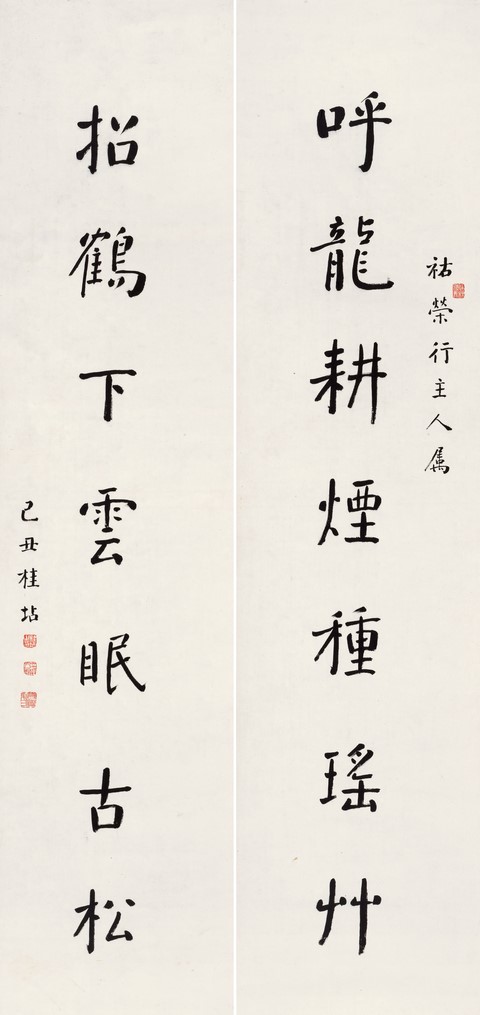 祜榮行主人属
呼龍耕煙種瑤艸
招鶴下雲眠古松
己丑桂坫